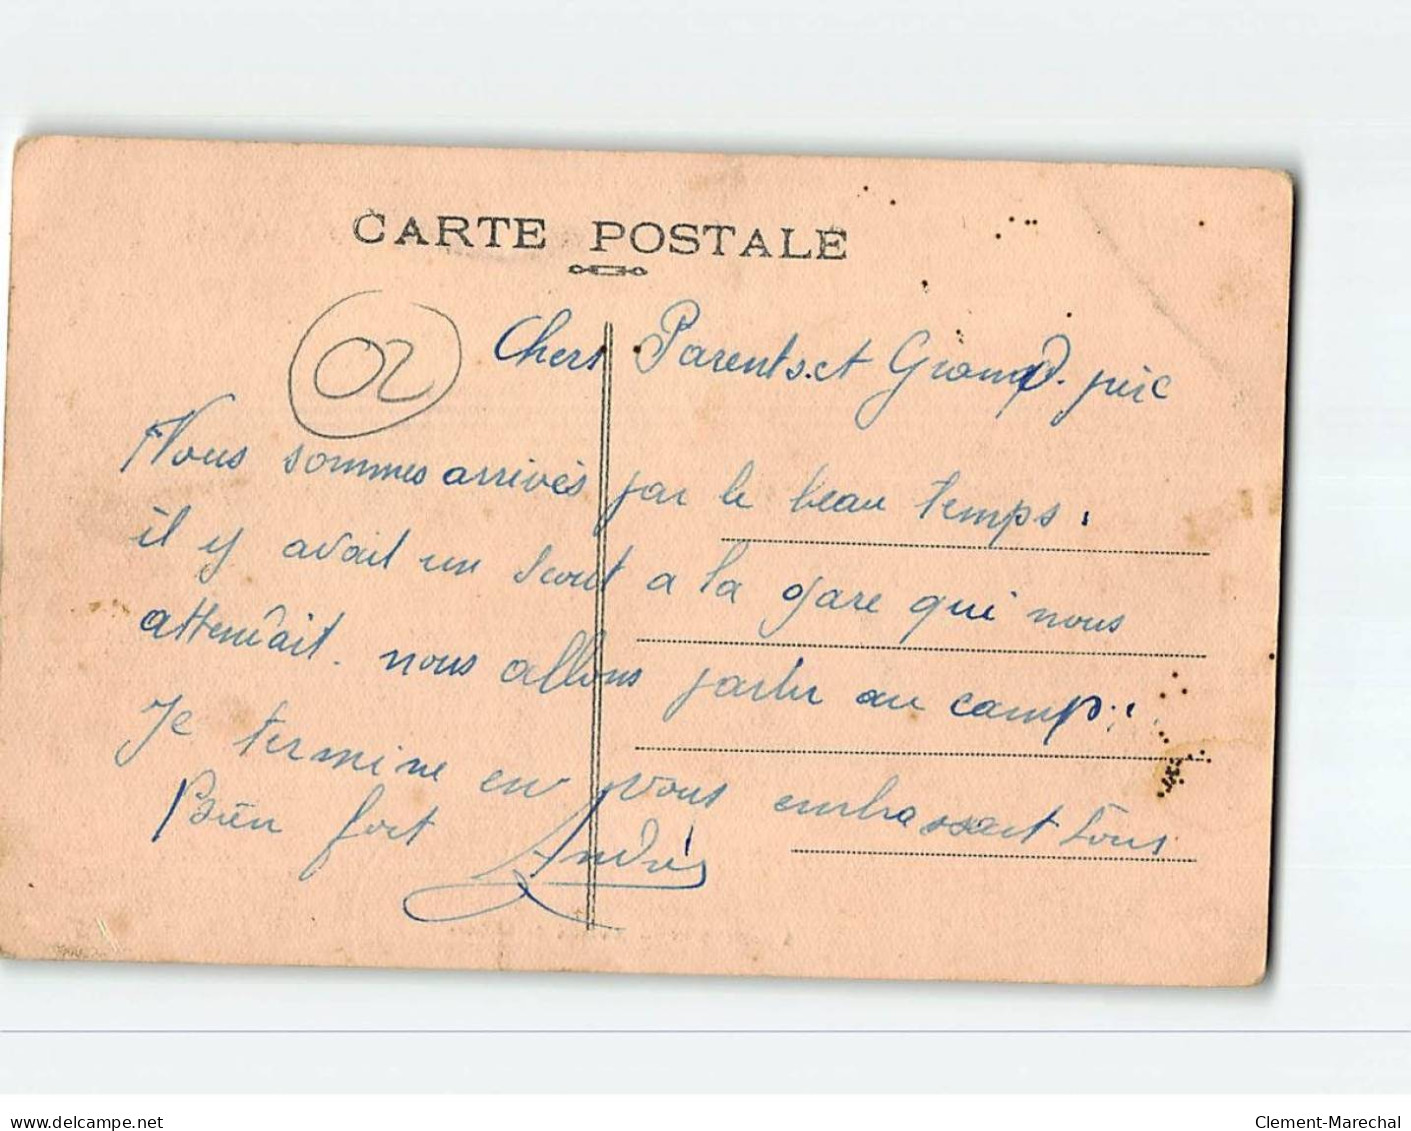 CARTE POSTALE
02
Chers Parents et Grand-père
Nous sommes arrivés par le beau temps.
il y avait un scout a la gare qui nous
attendait. nous allons partir au camp.
Je termine en vous embrassant tous
Bien fort André
delcampe.net
Clement-Marechal